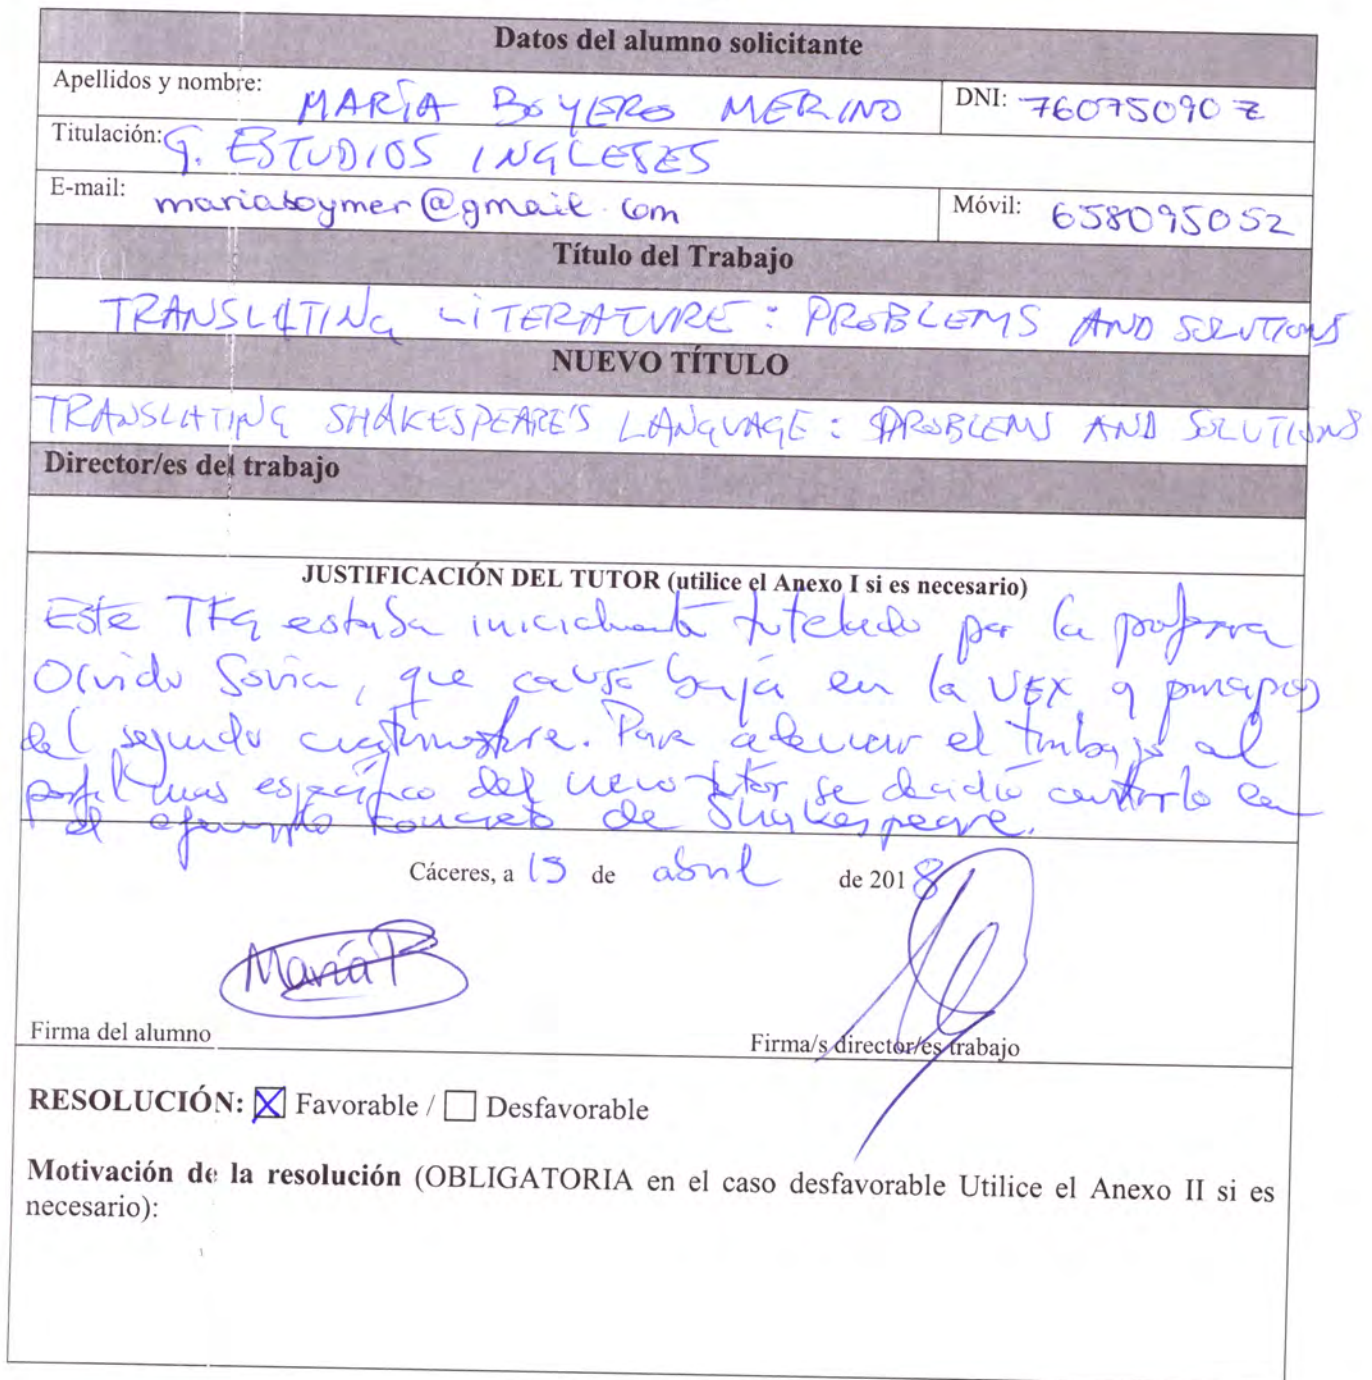 Datos del alumno solicitante
Apellidos y nombre: MARÍA BOYERO MERINO DNI: 76075090 Z
Titulación: G. ESTUDIOS INGLESES
E-mail: mariaboymer@gmail.com Móvil: 658095052
Título del Trabajo
TRANSLATING LITERATURE: PROBLEMS AND SOLUTIONS
NUEVO TÍTULO
TRANSLATING SHAKESPEARE'S LANGUAGE: PROBLEMS AND SOLUTIONS
Director/es del trabajo
JUSTIFICACIÓN DEL TUTOR (utilice el Anexo I si es necesario)
Este TFG estaba inicialmente tutelado por la profesora
Olvido Soria, que causó baja en la UEX a principios
del segundo cuatrimestre. Para adecuar el trabajo al
perfil mas específico del nuevo tutor se decidió centrarlo en
el ejemplo concreto de Shakespeare.
Cáceres, a 15 de abril de 2018
María B
Firma del alumno Firma/s director/es trabajo
RESOLUCIÓN: X Favorable / Desfavorable
Motivación de la resolución (OBLIGATORIA en el caso desfavorable Utilice el Anexo II si es
necesario):